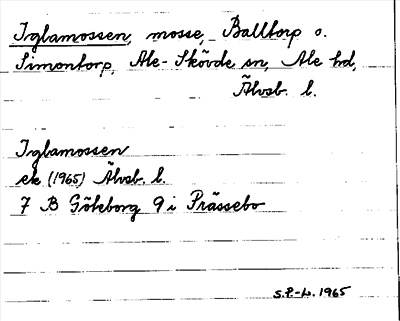 Iglamossen, mosse, Balltorp o.
Simontorp, Ale-Skövde sn, Ale hd,
Älvsb. l.
Iglamossen
ek (1965) Älvsb. l.
7 B Göteborg 9 i Prässebo
S.P.-L. 1965